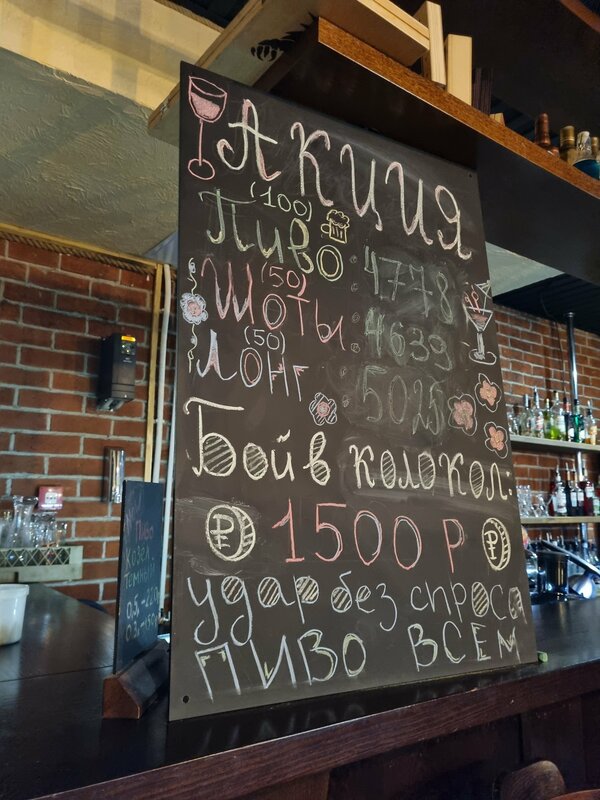 АКЦИЯ
(100)
ПИВО : 4778
(50)
ШОТЫ : 4639
(50)
ЛОНГ : 5025
Бой в колокол:
₽ 1500 р ₽
удар без спроса
ПИВО ВСЕМ
Пиво
Козел
Темное